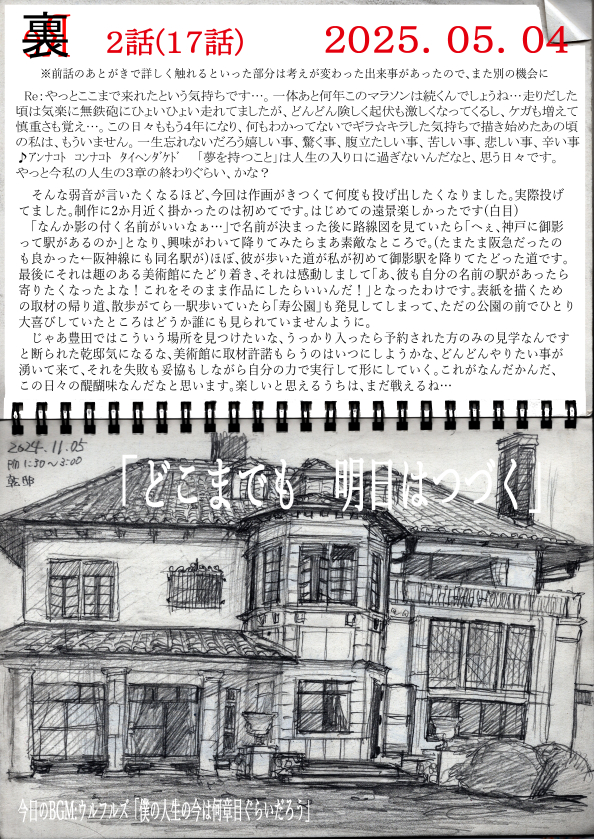 裏
2話(17話) 2025. 05. 04
※前話のあとがきで詳しく触れるといった部分は考えが変わった出来事があったので、また別の機会に
Re：やっとここまで来れたという気持ちです…。一体あと何年このマラソンは続くんでしょうね…走りだした
頃は気楽に無鉄砲にひょいひょい走れてましたが、どんどん険しく起伏も激しくなってくるし、ケガも増えて
慎重さも覚え…。この日々ももう4年になり、何もわかってないでギラ☆キラした気持ちで描き始めたあの頃
の私は、もういません。一生忘れないだろう嬉しい事、驚く事、腹立たしい事、苦しい事、悲しい事、辛い事
♪アンナコト コンナコト タイヘンダケド 「夢を持つこと」は人生の入り口に過ぎないんだなと、思う日々です。
やっと今私の人生の3章の終わりぐらい、かな？
そんな弱音が言いたくなるほど、今回は作画がきつくて何度も投げ出したくなりました。実際投げ
てました。制作に2か月近く掛かったのは初めてです。はじめての遠景楽しかったです(白目)
「なんか影の付く名前がいいなぁ…」で名前が決まった後に路線図を見ていたら「へぇ、神戸に御影
って駅があるのか」となり、興味がわいて降りてみたらまあ素敵なところで。(たまたま阪急だったの
も良かった←阪神線にも同名駅が)ほぼ、彼が歩いた道が私が初めて御影駅を降りてたどった道です。
最後にそれは趣のある美術館にたどり着き、それは感動しまして「あ、彼も自分の名前の駅があったら
寄りたくなったよな！これをそのまま作品にしたらいいんだ！」となったわけです。表紙を描くため
の取材の帰り道、散歩がてら一駅歩いていたら「寿公園」も発見してしまって、ただの公園の前でひとり
大喜びしていたところはどうか誰にも見られていませんように。
じゃあ豊田ではこういう場所を見つけたいな、うっかり入ったら予約された方のみの見学なんです
と断られた乾邸気になるな、美術館に取材許諾もらうのはいつにしようかな、どんどんやりたい事が
湧いて来て、それを失敗も妥協もしながら自分の力で実行して形にしていく。これがなんだかんだ、
この日々の醍醐味なんだなと思います。楽しいと思えるうちは、まだ戦えるね…
2024.11.05
PM 1:30～3:00
乾邸
「どこまでも 明日はつづく」
今日のBGM:ウルフルズ「僕の人生の今は何章目ぐらいだろう」